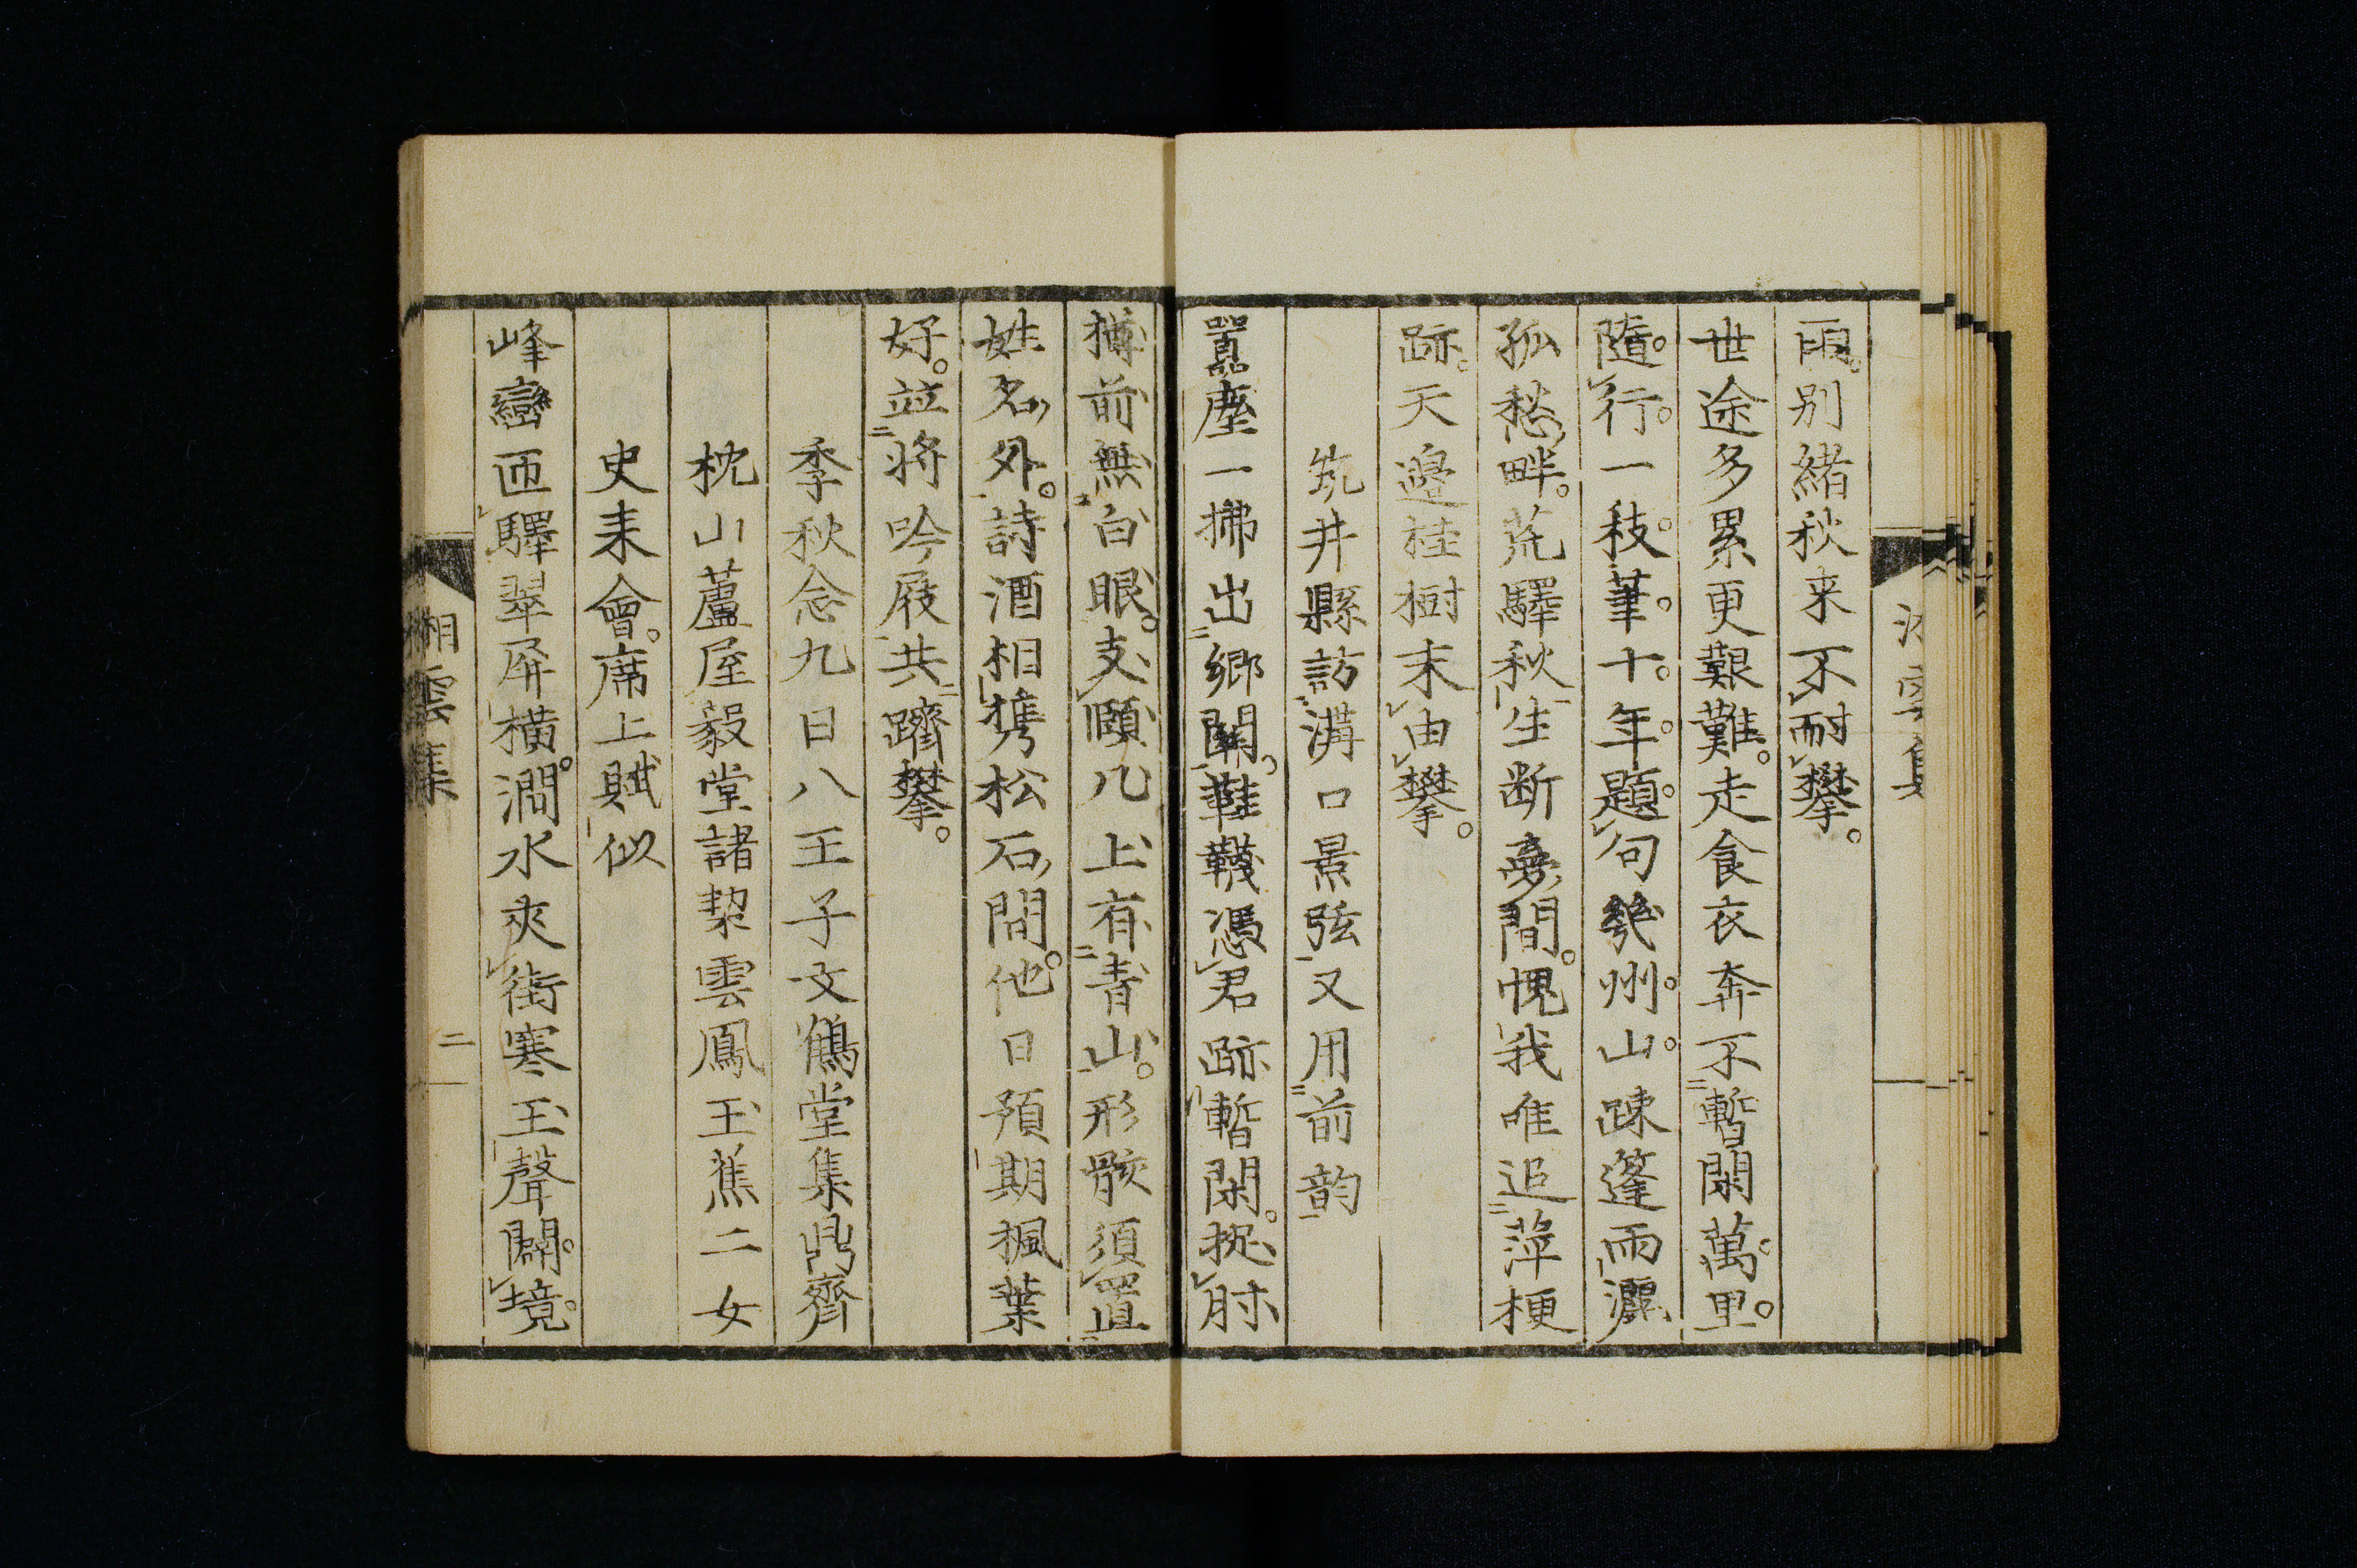 雨。别緒秋来不耐攀。
世途多累更艱難。走食衣奔不暫閑萬里。
隨行。一枝筆。十年題句幾州山。疎篷雨灑
孤愁畔。荒驛秋生断夢間。愧我唯追萍梗
跡。天邊桂樹末由攀。
筑井縣訪溝口景弦又用前韵
囂塵一拂出鄉關。鞋韈憑君跡暫閑。捉肘
樽前無白眼。支頤几上有青山。形骸須置
姓名外。詩酒相携松石間。他日預期楓葉
好。並将吟屐共躋攀。
季秋念九日八王子文鶴堂集鼎齋
枕山蘆屋毅堂諸契雲鳳玉蕉二女
史来會。席上賦似
峰巒匝驛翠屏橫。澗水夾街寒玉聲闢境。
湘雲集
二